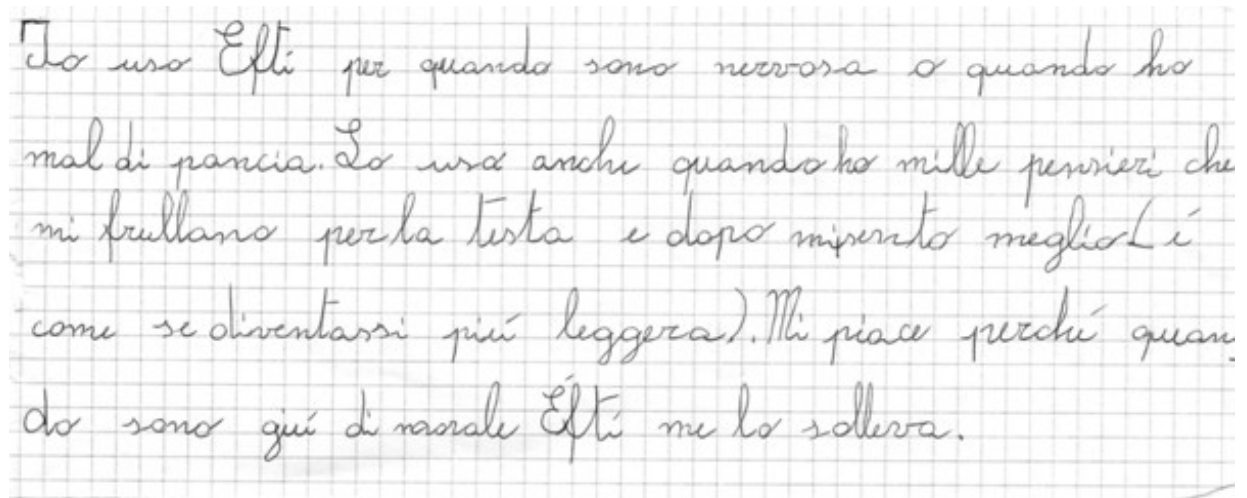 Io uso Efti per quando sono nervosa o quando ho
mal di pancia. Lo uso anche quando ho mille pensieri che
mi frullano per la testa e dopo mi sento meglio (é
come se diventassi piú leggera). Mi piace perché quan
do sono giú di morale Éfti me lo solleva.